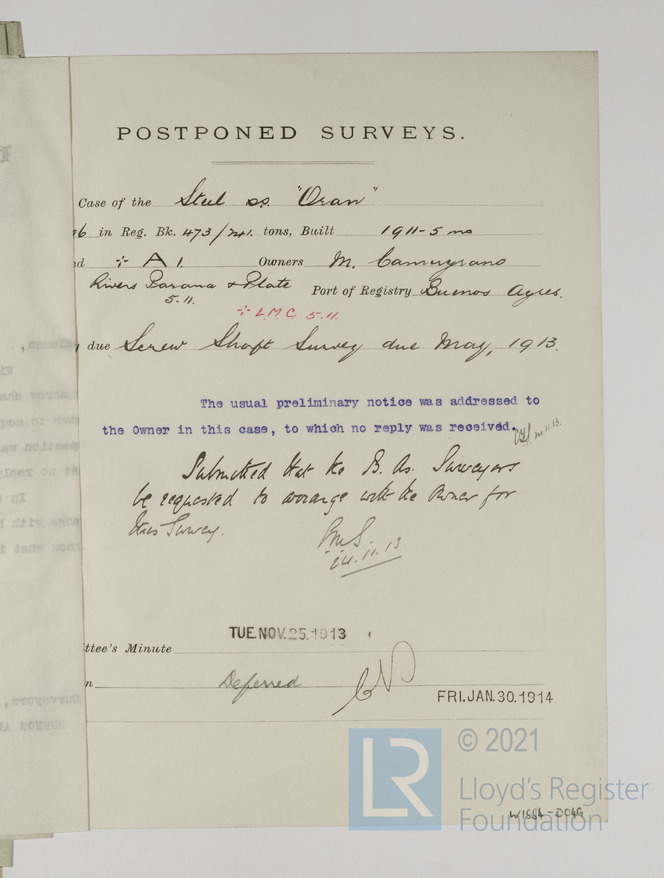 POSTPONED SURVEYS.
Case of the Steel ss. "Oran"
6 in Reg. Bk. 473/241. tons, Built 1911-5 mo
ed A 1. Owners M. Cannugrano
Rivers Parana & Plate
5.11. Port of Registry Buenos Ayres.
L.M.C. 5.11.
due Screw Shaft Survey due May, 1913.
The usual preliminary notice was addressed to
the Owner in this case, to which no reply was received.
11.13.
Submitted that the B. As. Surveyors
be requested to arrange with the Owner for
this Survey.
24.11.13
TUE. NOV. 25. 1913
ttee's Minute
n Deferred
FRI. JAN. 30. 1914
LR
© 2021
Lloyd's Register
Foundation
W1884-0049